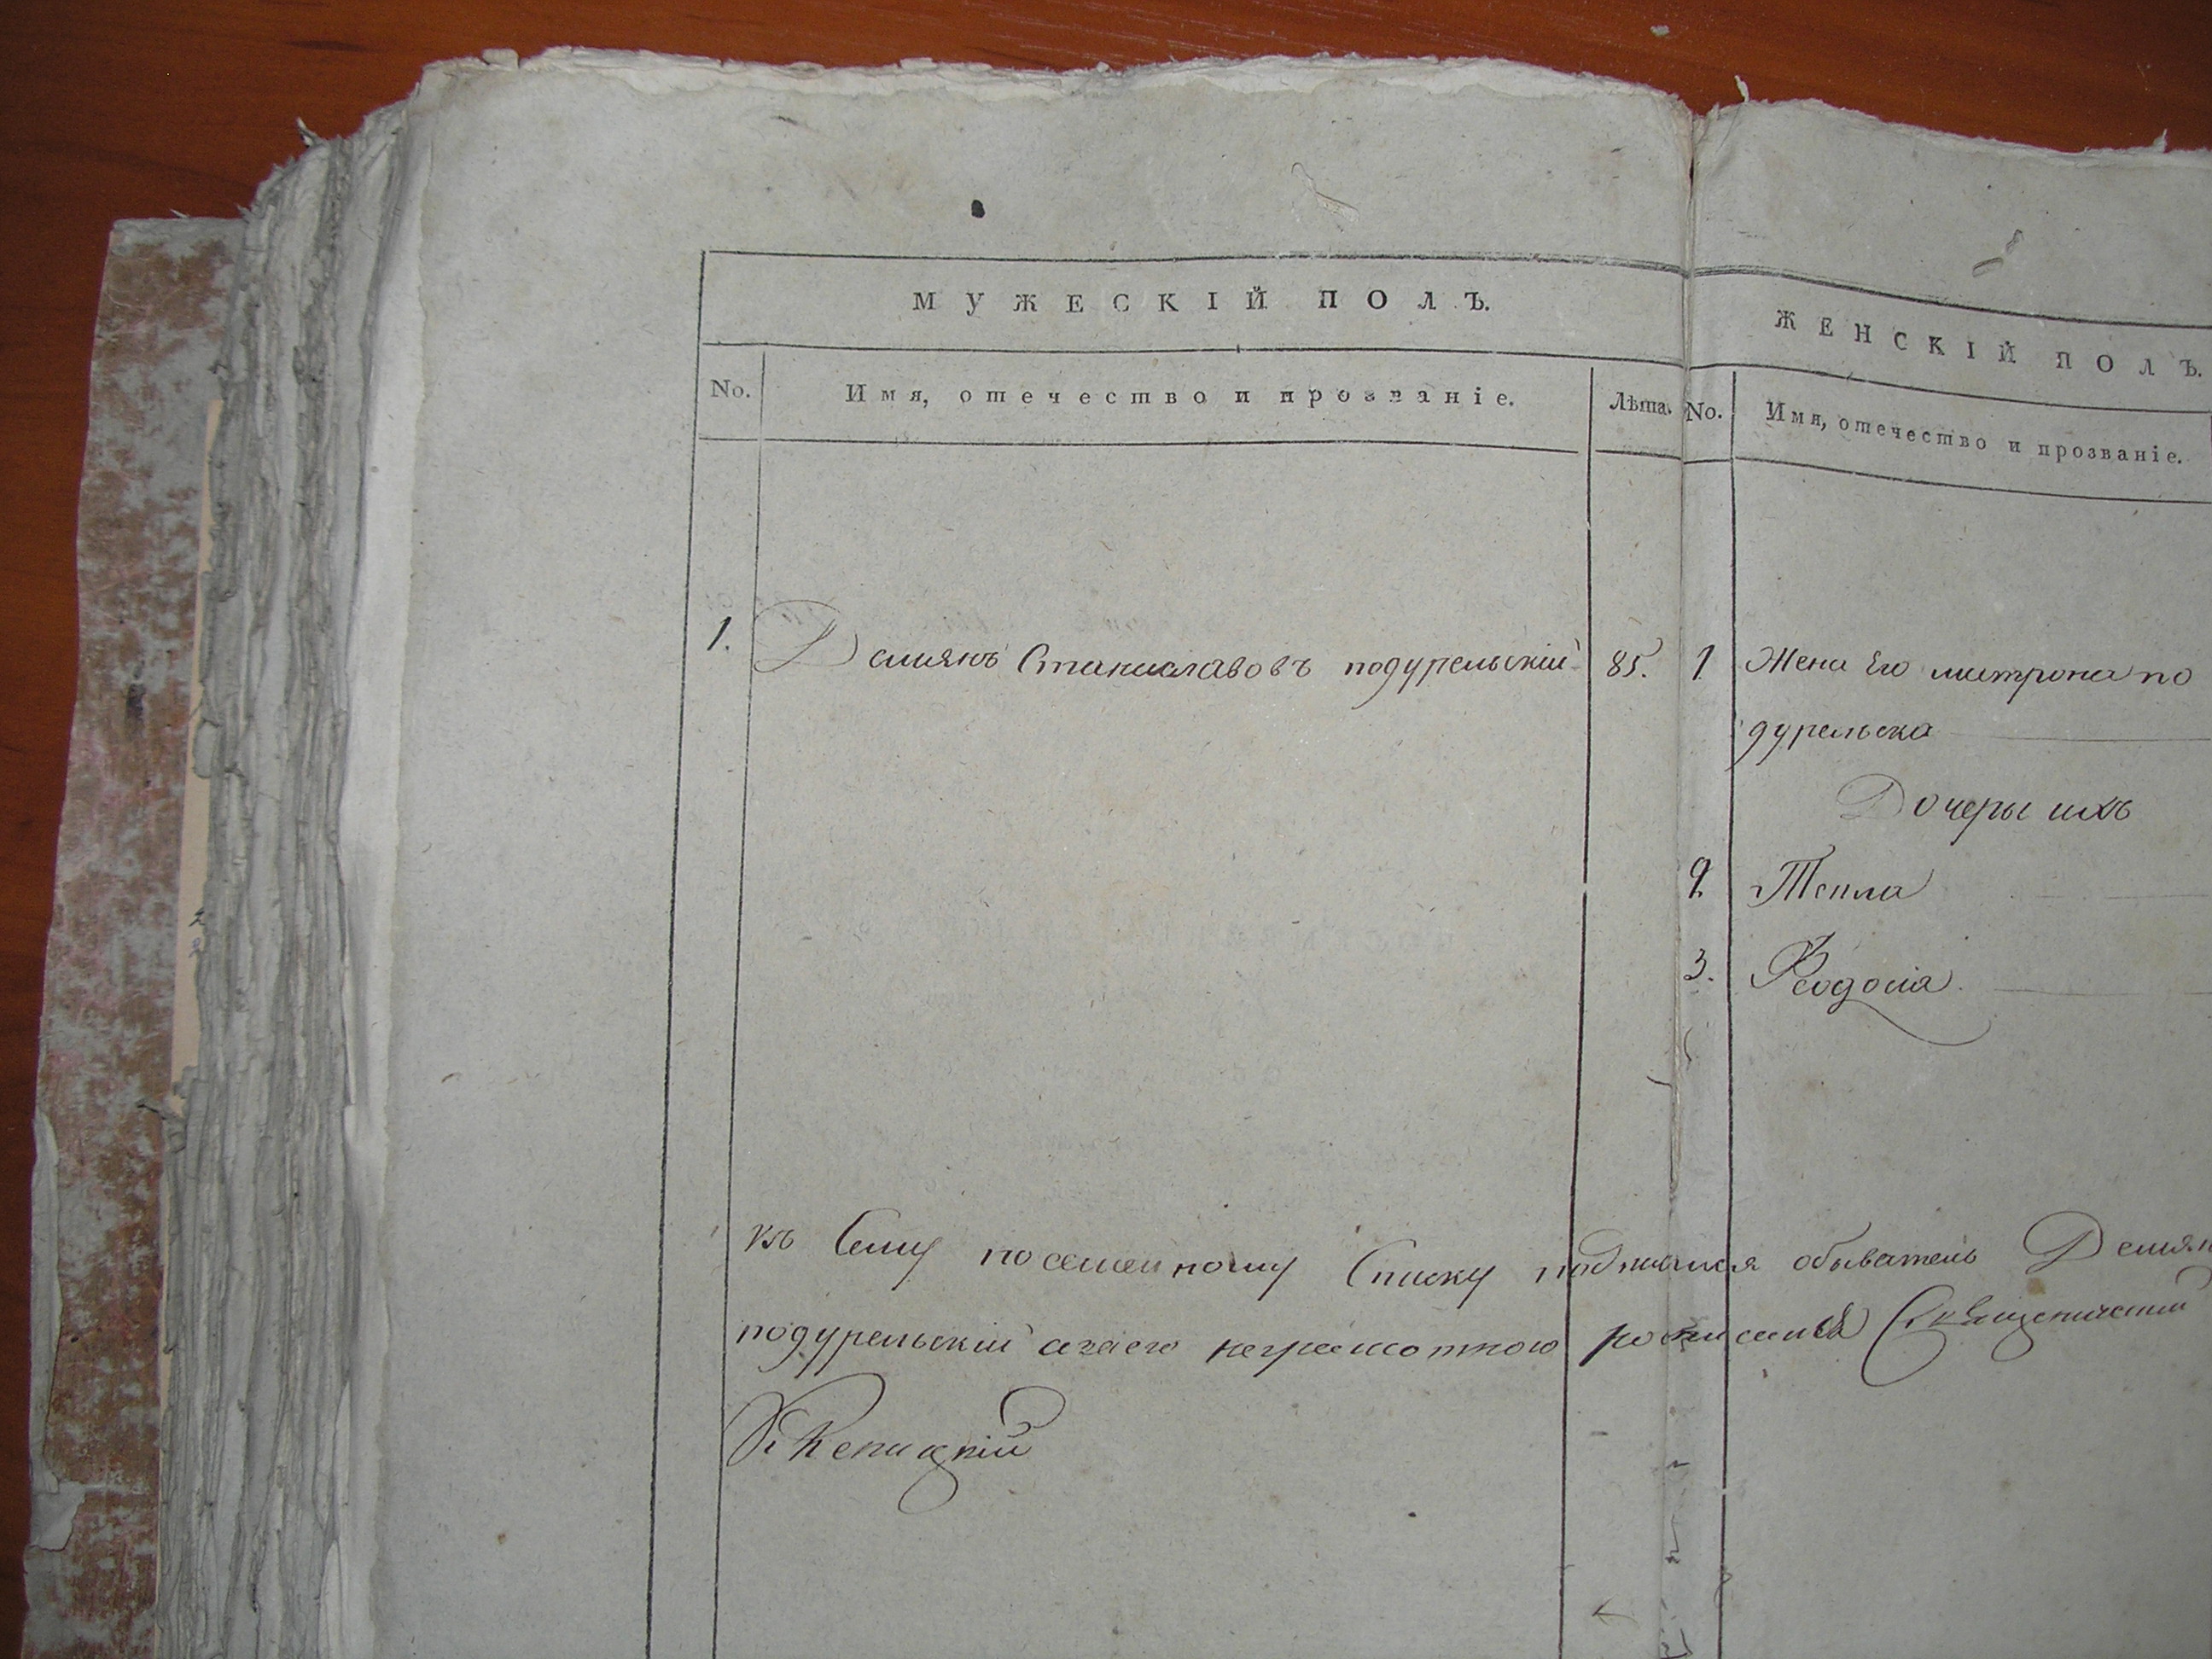 МУЖЕСКІЙ ПОЛЪ.
No.
Имя, отечество и прозваніе.
Лѣта.
1. Демянъ Станиславовъ подурельскій 85.
ЖЕНСКІЙ ПОЛЪ.
No.
Имя, отечество и прозваніе.
1 Жена Его матрона по
дурельска
Дочеры ихъ
2 Текла
3. Феодосія.
къ Сему посемейному Списку подписался обыватель Демян
подурельскій азаего неграмотного росписался Священникъ